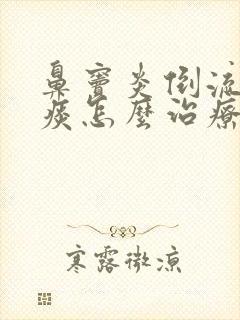 鼻竇炎倒流
痰怎麼治療
寒露微凉